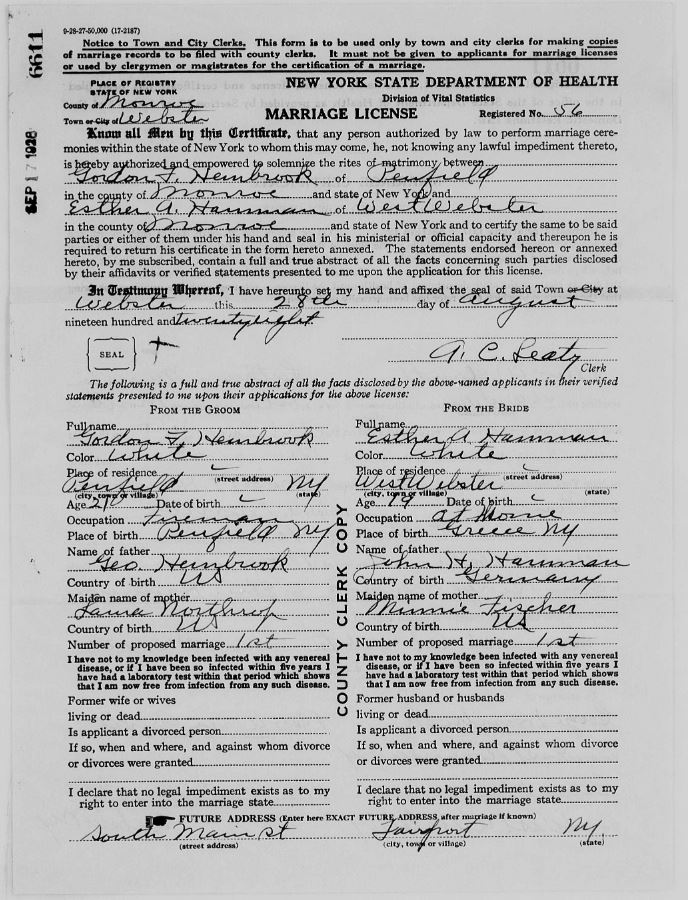 9-28-27-50,000 (17-2187)
6611
SEP 17 1928
Notice to Town and City Clerks. This form is to be used only by town and city clerks for making copies
of marriage records to be filed with county clerks. It must not be given to applicants for marriage licenses
or used by clergymen or magistrates for the certification of a marriage.
PLACE OF REGISTRY
STATE OF NEW YORK
County of Monroe
Town or City of Webster
NEW YORK STATE DEPARTMENT OF HEALTH
Division of Vital Statistics
MARRIAGE LICENSE
Registered No. 56
Know all Men by this Certificate, that any person authorized by law to perform marriage cere-
monies within the state of New York to whom this may come, he, not knowing any lawful impediment thereto,
is hereby authorized and empowered to solemnize the rites of matrimony between
Gordon F. Hembrook of Penfield
in the county of Monroe and state of New York and
Esther A. Hamman of West Webster
in the county of Monroe and state of New York and to certify the same to be said
parties or either of them under his hand and seal in his ministerial or official capacity and thereupon he is
required to return his certificate in the form hereto annexed. The statements endorsed hereon or annexed
hereto, by me subscribed, contain a full and true abstract of all the facts concerning such parties disclosed
by their affidavits or verified statements presented to me upon the application for this license.
In Testimony Whereof, I have hereunto set my hand and affixed the seal of said Town or City at
Webster this 28th day of August
nineteen hundred and twentyeight
SEAL
A. C. Leaty
Clerk
The following is a full and true abstract of all the facts disclosed by the above-named applicants in their verified
statements presented to me upon their applications for the above license:
FROM THE GROOM
Full name
Gordon F. Hembrook
Color White
Place of residence
(street address)
Penfield NY
(city, town or village) (state)
Age 21 Date of birth
Occupation Fireman
Place of birth Penfield NY
Name of father
Geo. Hembrook
Country of birth US
Maiden name of mother
Laura Northrop
Country of birth US
Number of proposed marriage 1st
I have not to my knowledge been infected with any venereal
disease, or if I have been so infected within five years I
have had a laboratory test within that period which shows
that I am now free from infection from any such disease.
Former wife or wives
living or dead
Is applicant a divorced person
If so, when and where, and against whom divorce
or divorces were granted
I declare that no legal impediment exists as to my
right to enter into the marriage state
COUNTY CLERK COPY
FROM THE BRIDE
Full name
Esther A Hamman
Color White
Place of residence
(street address)
West Webster
(city, town or village) (state)
Age 19 Date of birth
Occupation at Home
Place of birth Greece NY
Name of father
John H. Hamman
Country of birth Germany
Maiden name of mother
Minnie Fischer
Country of birth US
Number of proposed marriage 1st
I have not to my knowledge been infected with any venereal
disease, or if I have been so infected within five years I
have had a laboratory test within that period which shows
that I am now free from infection from any such disease.
Former husband or husbands
living or dead
Is applicant a divorced person
If so, when and where, and against whom divorce
or divorces were granted
I declare that no legal impediment exists as to my
right to enter into the marriage state
FUTURE ADDRESS (Enter here EXACT FUTURE ADDRESS after marriage if known)
South Main st Fairport NY
(street address) (city, town or village) (state)